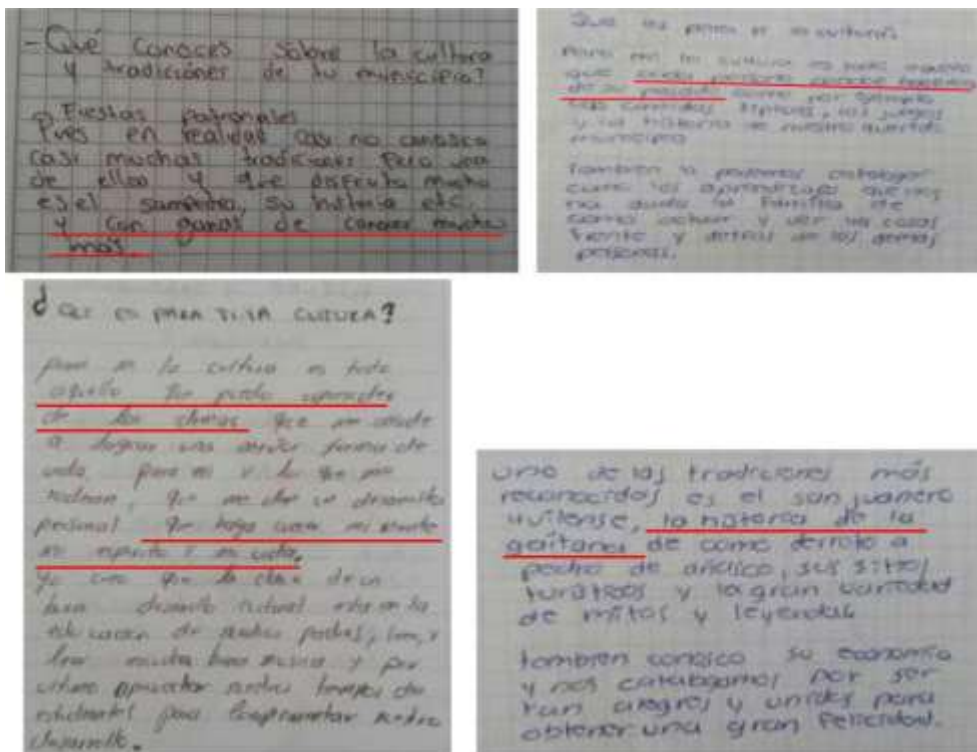 - Qué conoces sobre la cultura
y tradiciónes de tu municipio?
Fiestas patronales
Pues en realidad casi no conosco
casi muchas tradiciones Pero una
de ellas y que disfruto mucho
es el sampedro, su historia etc.
y con ganas de conocer mucho
más.
Que es para ti la cultura?
Para mi la cultura es todo aquello
que cada persona puede
de su pasado como por ejemplo
las comidas tipicas, los juegos
y la historia de nuestro querido
municipio
tambien la podemos catalogar
como los aprendizajes que nos
ha dado la familia de
como actuar y ver las cosas
frente y detras de las demas
personas.
¿QUE ES PARA TI LA CULTURA?
para mi la cultura es todo
aquello que puedo aprender
de los demas que me ayude
a lograr una mejor forma de
vida para mi y los que me
rodean, que me de un desarrollo
personal que haga crecer mi mente
mi espiritu y mi vida.
yo creo que la clave de un
buen desarrollo cultural esta en la
educacion de nuestros padres, leer, y
mucha buena musica y por
ultimo aprovechar nuestros tiempos de
estudiantes para complementar nuestro
desarrollo.
uno de las tradiciones más
reconocidas es el san juanero
uilense, la historia de la
gaitana de como derroto a
pedro de añasco, sus sitios
turisticos y la gran variedad
de mitos y leyendas
tambien conosco su economia
y nos catalogamos por ser
tan alegres y unidos para
obtener una gran felicidad.